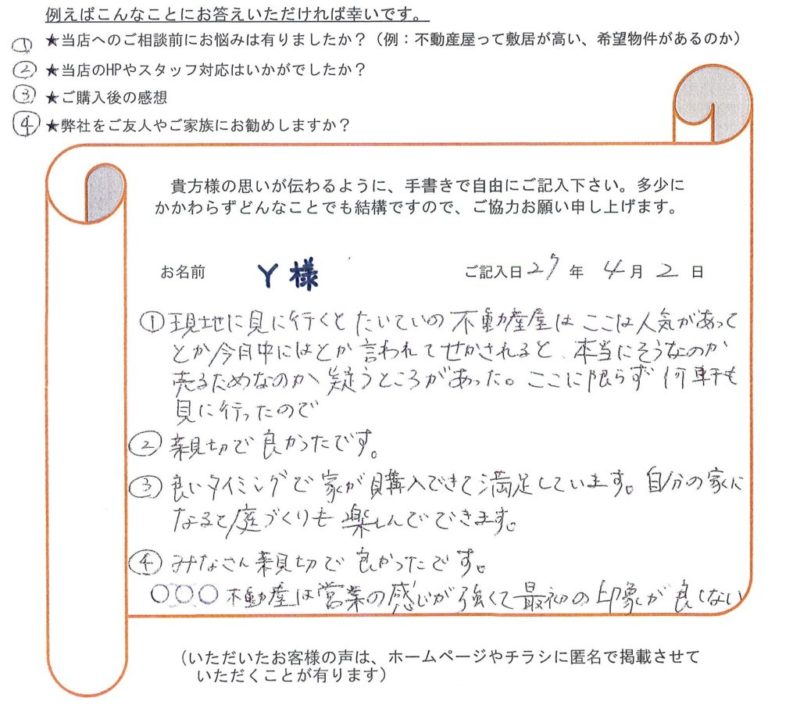 例えばこんなことにお答えいただければ幸いです。
① ★当店へのご相談前にお悩みは有りましたか？（例：不動産屋って敷居が高い、希望物件があるのか）
② ★当店のHPやスタッフ対応はいかがでしたか？
③ ★ご購入後の感想
④ ★弊社をご友人やご家族にお勧めしますか？
貴方様の思いが伝わるように、手書きで自由にご記入下さい。多少に
かかわらずどんなことでも結構ですので、ご協力お願い申し上げます。
お名前 Y様 ご記入日 27 年 4 月 2 日
① 現地に見に行くとたいていの不動産屋はここは人気があって
とか今日中にはとか言われてせかされると、本当にそうなのか
売るためなのか疑うところがあった。ここに限らず何軒も
見に行ったので
② 親切で良かったです。
③ 良いタイミングで家が購入できて満足しています。自分の家に
なると庭づくりも楽しんでできます。
④ みなさん親切で良かったです。
○○○不動産は営業の感じが強くて最初の印象が良くない
（いただいたお客様の声は、ホームページやチラシに匿名で掲載させて
いただくことが有ります）